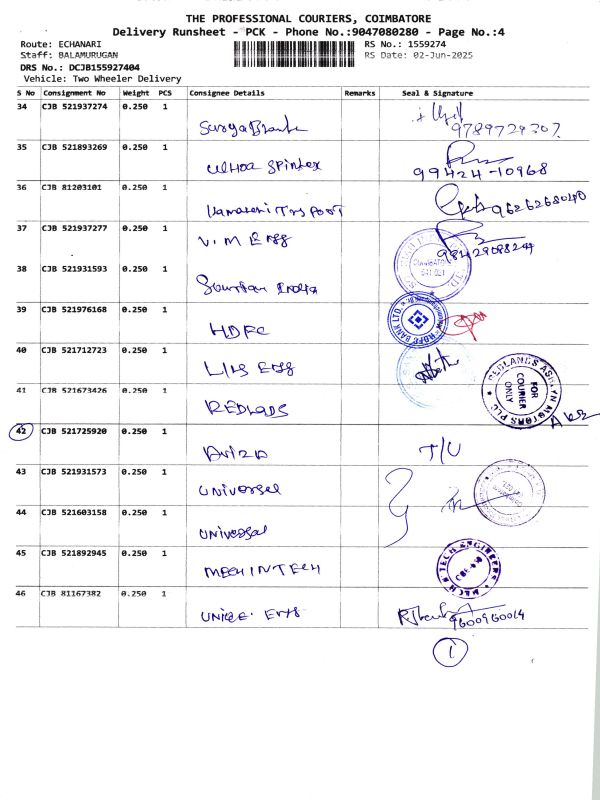 THE PROFESSIONAL COURIERS, COIMBATORE
Delivery Runsheet - PCK - Phone No.:9047080280 - Page No.:4
Route: ECHANARI
Staff: BALAMURUGAN
DRS No.: DCJB155927404
Vehicle: Two Wheeler Delivery
RS No.: 1559274
RS Date: 02-Jun-2025
S No Consignment No Weight PCS Consignee Details Remarks Seal & Signature
34 CJB 521937274 0.250 1 9789729307
35 CJB 521893269 0.250 1 99424-10968
36 CJB 81203101 0.250 1 9626268040
37 CJB 521937277 0.250 1 V.M Engg 9842908824
38 CJB 521931593 0.250 1 India
39 CJB 521976168 0.250 1 HDFC HDFC BANK LTD.
40 CJB 521712723 0.250 1 Engg
41 CJB 521673426 0.250 1 REDLANDS REDLANDS ASHLYN MOTORS PLC FOR COURIER ONLY
42 CJB 521725920 0.250 1 T/U
43 CJB 521931573 0.250 1 Universal
44 CJB 521603158 0.250 1 Universal
45 CJB 521892945 0.250 1 MECHINTECH TECH ENGINEERS
46 CJB 81167382 0.250 1 9600960014
1